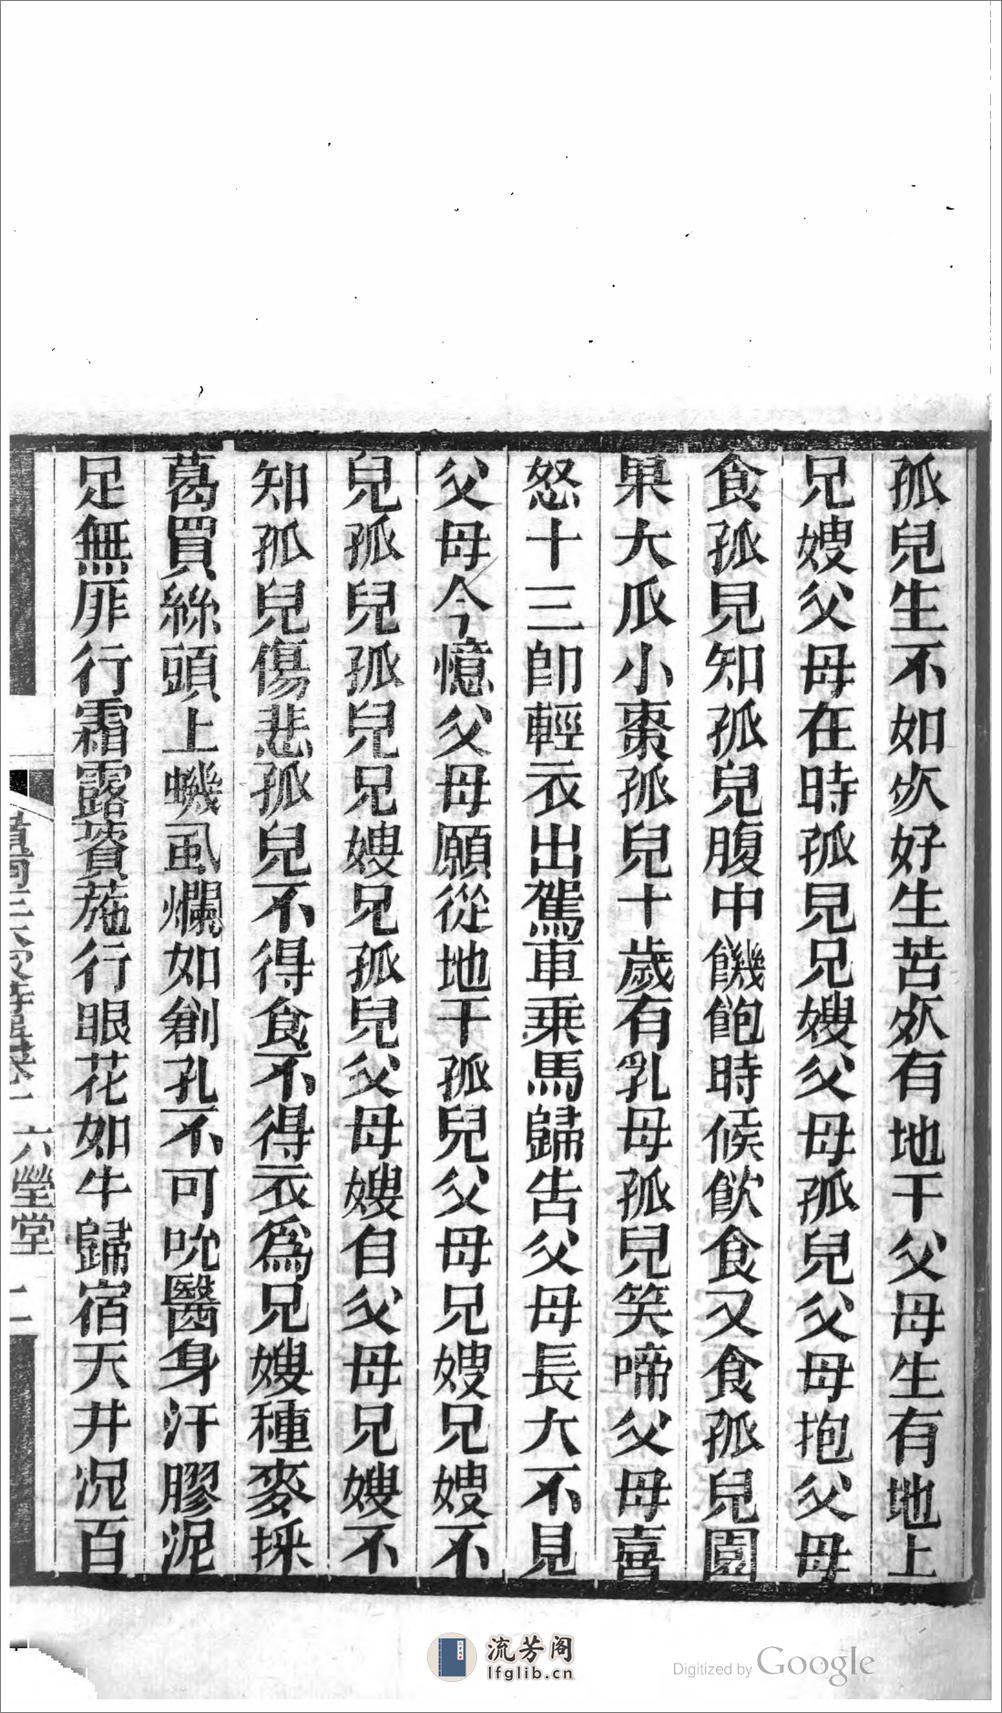 孤兒生不如死好生苦死有地干父母生有地上
兄嫂父母在時孤兒兄嫂父母孤兒父母抱父母
食孤兒知孤兒腹中饑飽時候飲食又食孤兒園
果大瓜小棗孤兒十歲有乳母孤兒笑啼父母喜
怒十三即輕衣出駕車乗馬歸告父母長大不見
父母今憶父母願從地干孤兒父母兄嫂兄嫂不
兒孤兒孤兒兄嫂兄孤兒父母嫂自父母兄嫂不
知孤兒傷悲孤兒不得食不得衣為兄嫂種麥採
葛買絲頭上蟣虱爛如創孔不可吮醫身汗膠泥
足無厞行霜露蒺䔟行眼花如牛歸宿天井况百
六瑩堂
二
流芳阁
lfglib.cn
Digitized by Google